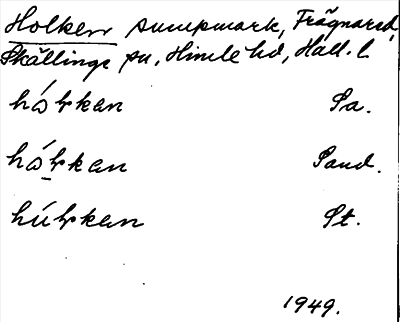 Holken sumpmark, Frägnared,
Skällinge sn, Himle hd, Hall. l.
hólkan Sa.
hó̱lkan Sand.
húlkan St.
1949.